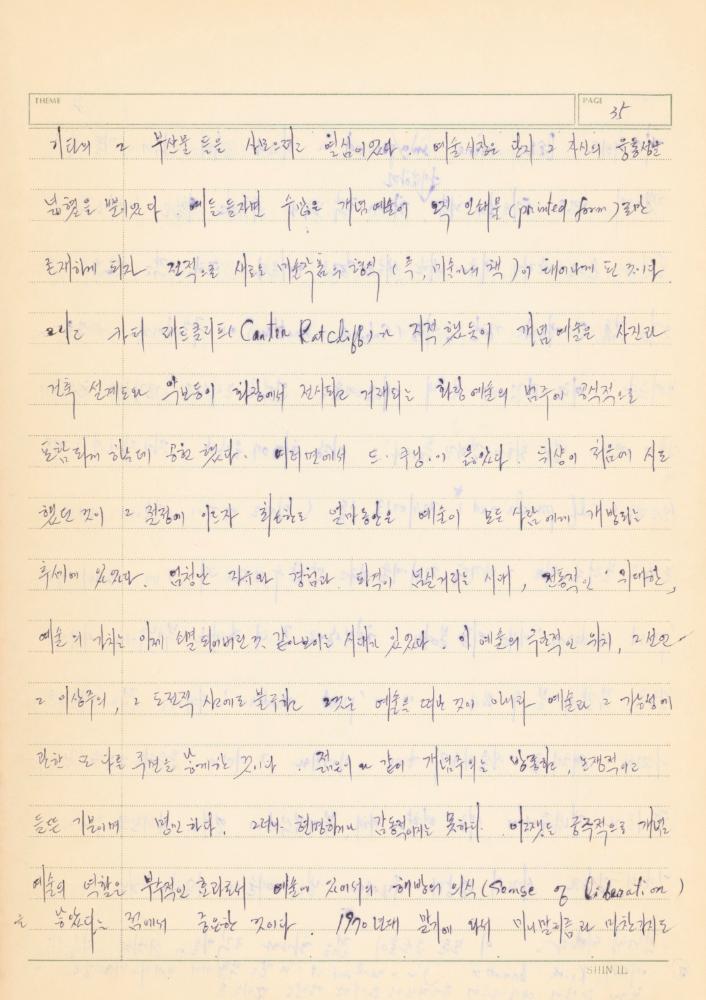 THEME
PAGE
35
기타의 그 부산물 들을 사모으려고 열심이었다. 예술시장은 단지 그 자신의 융통성만
넓혔을 뿐이었다. 예를 들자면 수많은 개념예술이 오직 인쇄물(printed form)로만
존재하게 되자 전적으로 새로운 미술작품의 형식(즉, 미술가의 책)이 태어나게 된 것이다.
그리고 카터 래트클리프( Ratcliff)가 지적했듯이 개념예술은 사진과
건축 설계도와 악보등이 화랑에서 전시되고 거래되는 화랑 예술의 범주에 공식적으로
포함되게 하는데 공헌했다. 여러면에서 드·쿠닝·이 옳았다. 뒤샹이 처음에 시도
했던 것이 그 절정에 이르자 최소한도 얼마동안은 예술이 모든 사람에게 개방되는
추세에 있었다. 엄청난 자유와 경험과 파격이 넘실거리는 시대, 전통적인 위대한,
예술의 가치는 이제 소멸되어버린 것 같아보이는 시대가 있었다. 이 예술의 극한적인 위치, 그 선언
그 이상주의, 그 도전적 사고에도 불구하고 그것은 예술을 떠난 것이 아니라 예술과 그 가능성에
관한 또 다른 국면을 낳게한 것이다. 젊은이와 같이 개념주의는 방종하고, 논쟁적이고
들뜬 기분이며 명민하다. 그러나 현명하거나 감동적이지는 못하다. 어쨌든 궁극적으로 개념
예술의 역할은 부수적인 효과로서 예술에 있어서의 해방의 의식(Sense of liberation)
을 낳았다는 점에서 중요한 것이다. 1970년대 말기에 와서 미니말리즘과 마찬가지로
SHIN IL